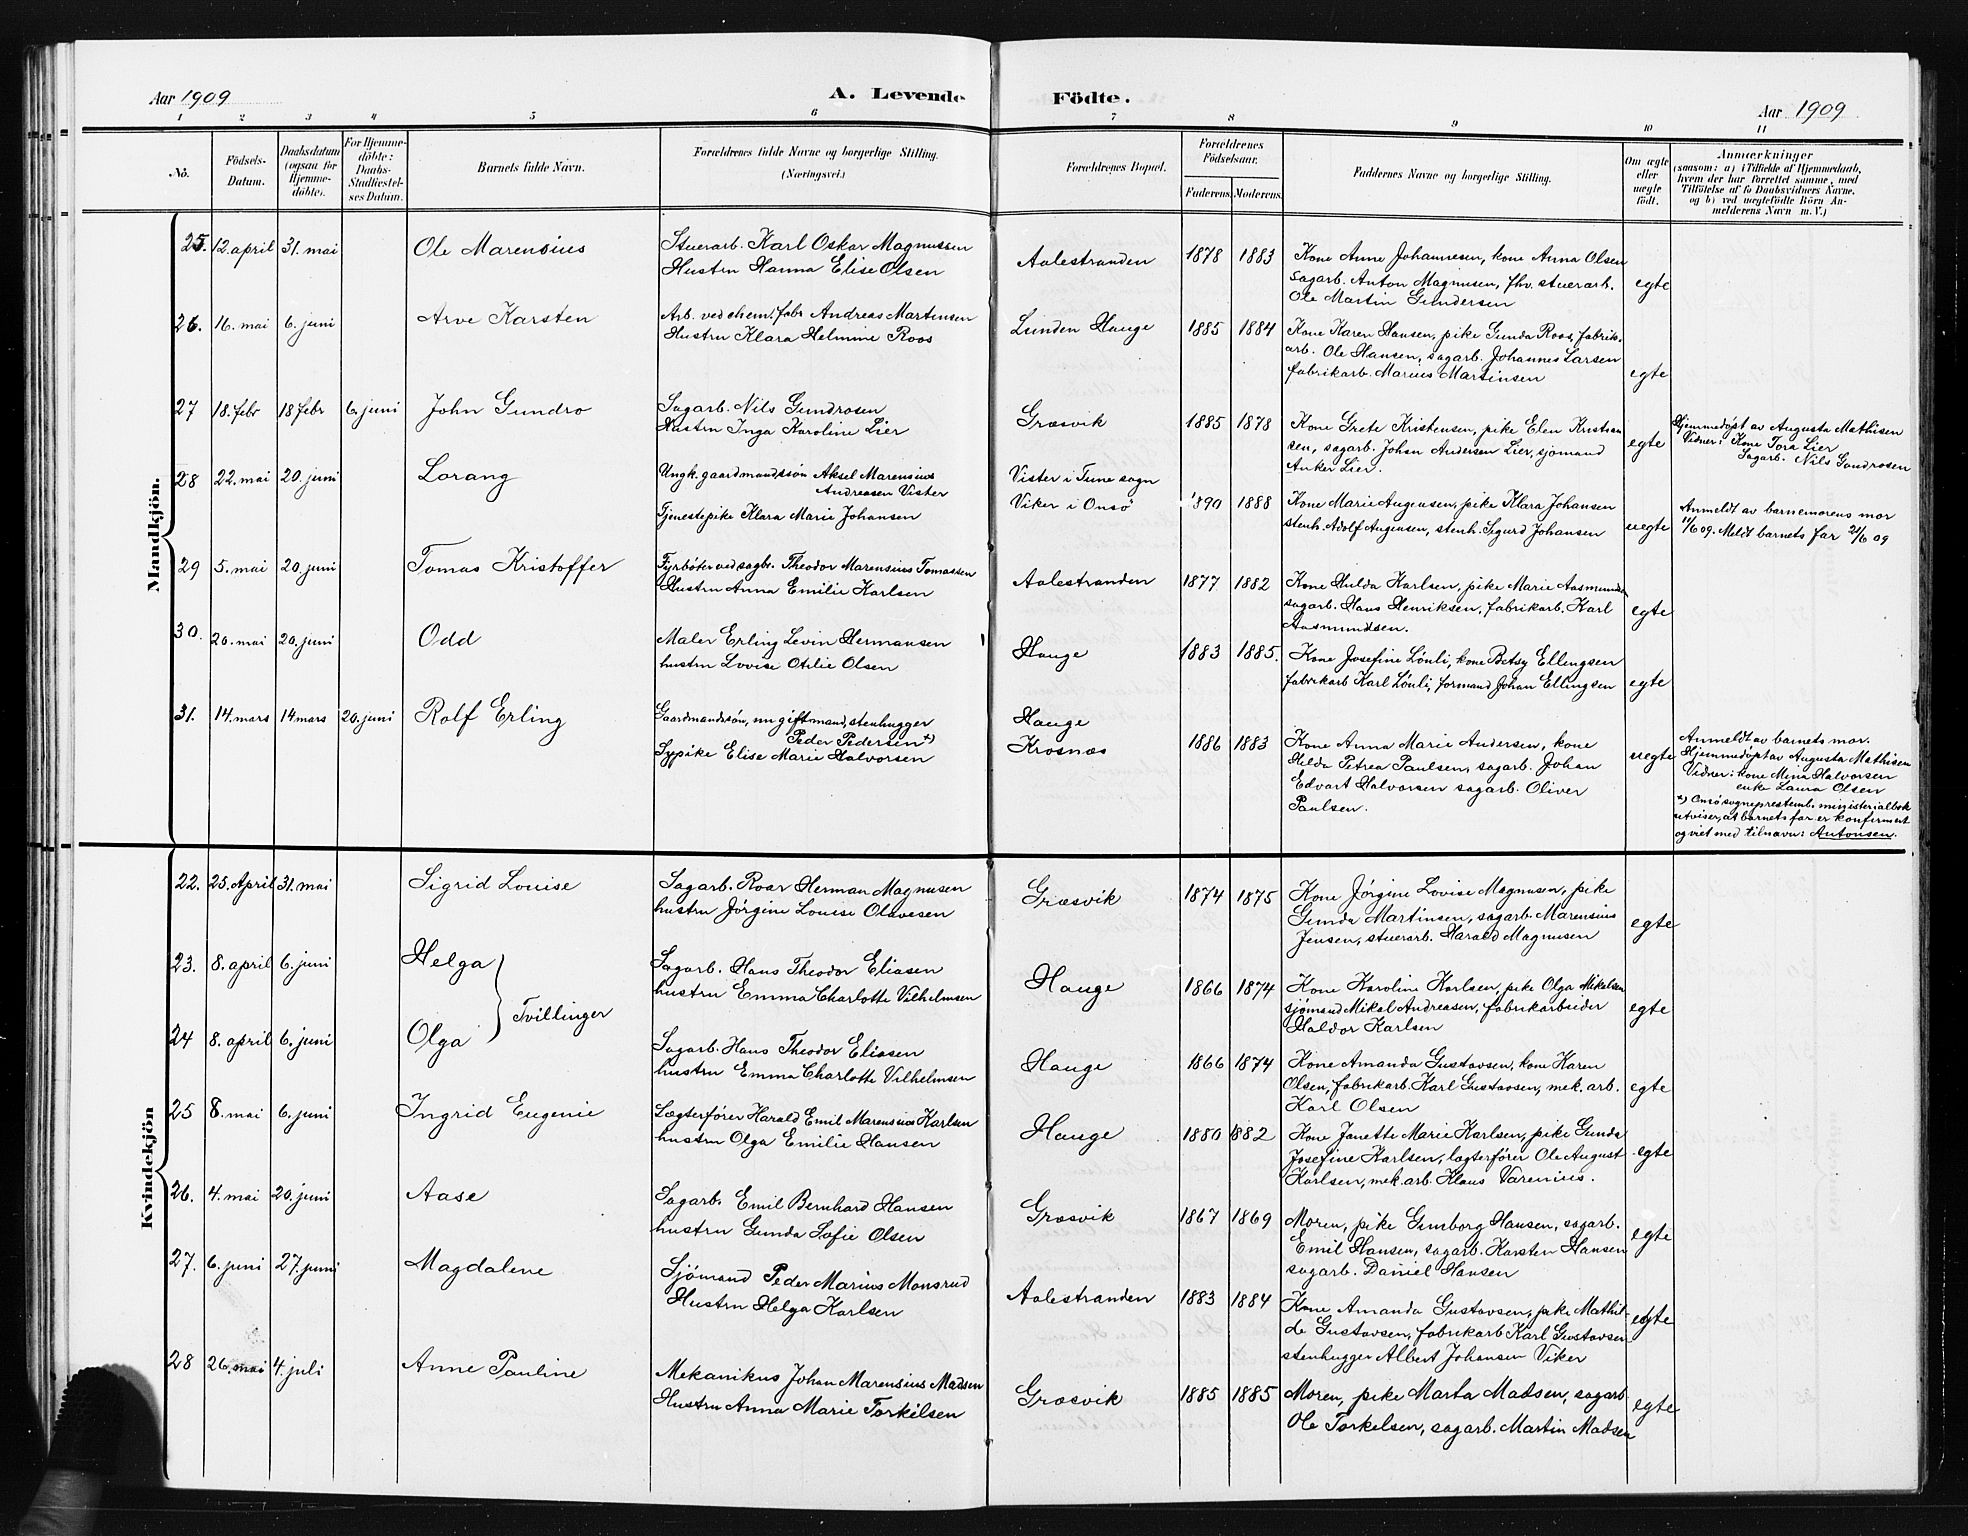 Aar 1909
A. Levende Födte.
Aar 1909
1 2 3 4 5 6 7 8 9 10 11
No.
Födsels-Datum.
Daabsdatum (ogsaa for Hjemme-döbte).
For Hjemme-döbte: Daabs-Stadfæstel-ses Datum.
Barnets fulde Navn.
Forældrenes fulde Navne og borgerlige Stilling.
(Næringsvei.)
Forældrenes Bopæl.
Forældrenes Födselsaar.
Faderens. Moderens.
Faddernes Navne og borgerlige Stilling.
Om ægte eller uægte födt.
Anmærkninger
(saasom: a) i Tilfælde af Hjemmedaab,
hvem der har forrettet samme, med
Tilföielse af to Daabsvidners Navne,
og b) ved uægtefödte Börn An-
melderens Navn m. V.)
Mandkjön.
25. 12. april 31. mai Ole Marensius
Stuerarb. Karl Oskar Magnussen
Hustru Hanna Elise Olsen
Aalestranden 1878 1883
Kone Anne Johannesen, kone Anna Olsen
sagarb. Anton Magnusen, fhv. stuerarb.
Ole Martin Gundersen
egte
26. 16. mai 6. juni Arve Karsten
Arb. ved chem. fabr Andreas Martinsen
Hustru Klara Helmine Roos
Lunden Hauge 1885 1884
Kone Karen Hansen, pike Gunda Roos, fabrik-
arb. Ole Hansen, sagarb. Johannes Larsen
fabrikarb. Marius Martinsen
egte
27 18. febr 18 febr 6. juni John Gundro
Sagarb. Nils Gundrosen
Hustru Inga Karoline Lier
Græsvik 1885 1878
Kone Grete Kristensen, pike Elen Kristian
sen, sagarb. Johan Andersen Lier, sjömand
Anker Lier.
egte
Hjemmedøpt av Augusta Mathisen
Vidner: Kone Tora Lier
Sagarb. Nils Gundrosen
28 22. mai 20. juni Lorang
Ungk. gaardmandssøn Aksel Marensius
Andreasen Vister
Tjenestepike Klara Marie Johansen
Vister i Tune sogn
Viker i Onsö
1890 1888
Kone Marie Augensen, pike Klara Johansen
stenh. Adolf Augensen, stenh. Sigurd Johansen
uegte
Anmeldt av barnemorens mor
11/6 09. Meldt barnets far 21/6 09
29 5. mai 20. juni Tomas Kristoffer
Fyrbøter ved sagbr. Theodor Marensius Tomassen
Hustru Anna Emilie Karlsen
Aalestranden 1877 1882
Kone Hulda Karlsen, pike Marie Aasmundsen
sagarb. Hans Henriksen, fabrikarb. Karl
Aasmundsen.
egte
30. 20. mai 20. juni Odd
Maler Erling Levin Hermansen
hustru Lovise Otilie Olsen
Hauge 1883 1885.
Kone Josefine Lönli, kone Betsy Ellingsen
fabrikarb Karl Lönli, formand Johan Ellingsen
egte
31. 14. mars 14 mars 20. juni Rolf Erling
Gaardmandssön, ungiftmand, stenhugger
Peder Pedersen x)
Sypike Elise Marie Halvorsen
Hauge
Krosnæs
1886 1883
Kone Anna Marie Andersen, kone
Helda Petrea Paulsen, sagarb. Johan
Edvart Halvorsen sagarb. Oliver
Paulsen.
uegte
Anmeldt av barnets mor.
Hjemmedöpt av Augusta Mathisen
Vidner: kone Mina Halvorsen
enke Laura Olsen
x) Onsö sogneprestemb. ministerialbok
utviser, at barnets far er konfirmert
og viet med tilnavn: Antonsen.
Kvindekjön
22. 25. April 31. mai Sigrid Louise
Sagarb. Roar Herman Magnusen
hustru Jörgine Louise Olavesen
Græsvik 1874 1875
Kone Jörgine Lovise Magnusen, pike
Gunda Martinsen, sagarb. Marensius
Jensen, stuerarb. Harald Magnusen
egte
23. 8. april 6. juni Helga
Tvillinger
Sagarb. Hans Theodor Eliasen
hustru Emma Charlotte Vilhelmsen
Hauge 1866 1874
Kone Karoline Karlsen, pike Olga Mikalsen
sjömand Mikal Andreasen, fabrikarbeider
Haldor Karlsen
egte
24 8. april 6. juni Olga
Sagarb. Hans Theodor Eliasen
hustru Emma Charlotte Vilhelmsen
Hauge 1866 1874
Kone Amanda Gustavsen, kone Karen
Olsen, fabrikarb. Karl Gustavsen, mek. arb.
Karl Olsen
egte
25 8. mai 6. juni Ingrid Eugenie
Lægterfører Harald Emil Marensius Karlsen
hustru Olga Emilie Hansen
Hauge 1880 1882
Kone Janette Marie Karlsen, pike Gunda
Josefine Karlsen, lægterförer Ole August
Karlsen, mek. arb. Klaus Varenius.
egte
26. 4. mai 20. juni Aase
Sagarb. Emil Bernhard Hansen
hustru Gunda Sofie Olsen
Græsvik 1867 1869
Moren, pike Gunborg Hansen, sagarb.
Emil Hansen, sagarb. Karsten Hansen
sagarb. Daniel Hansen
egte
27. 6. juni 27. juni Magdalene
Sjömand Peder Marius Monsrud
Hustru Helga Karlsen
Aalestranden 1883 1884
Kone Amanda Gustavsen, pike Mathil-
de Gustavsen, fabrikarb Karl Gustavsen
stenhugger Albert Johansen Viker
egte
28 26. mai 4. juli Anne Pauline
Mekanikus Johan Marensius Madsen
Hustru Anna Marie Torkilsen
Græsvik 1885 1885
Moren, pike Marta Madsen, sagarb
Ole Torkelsen, sagarb. Martin Madsen
egte